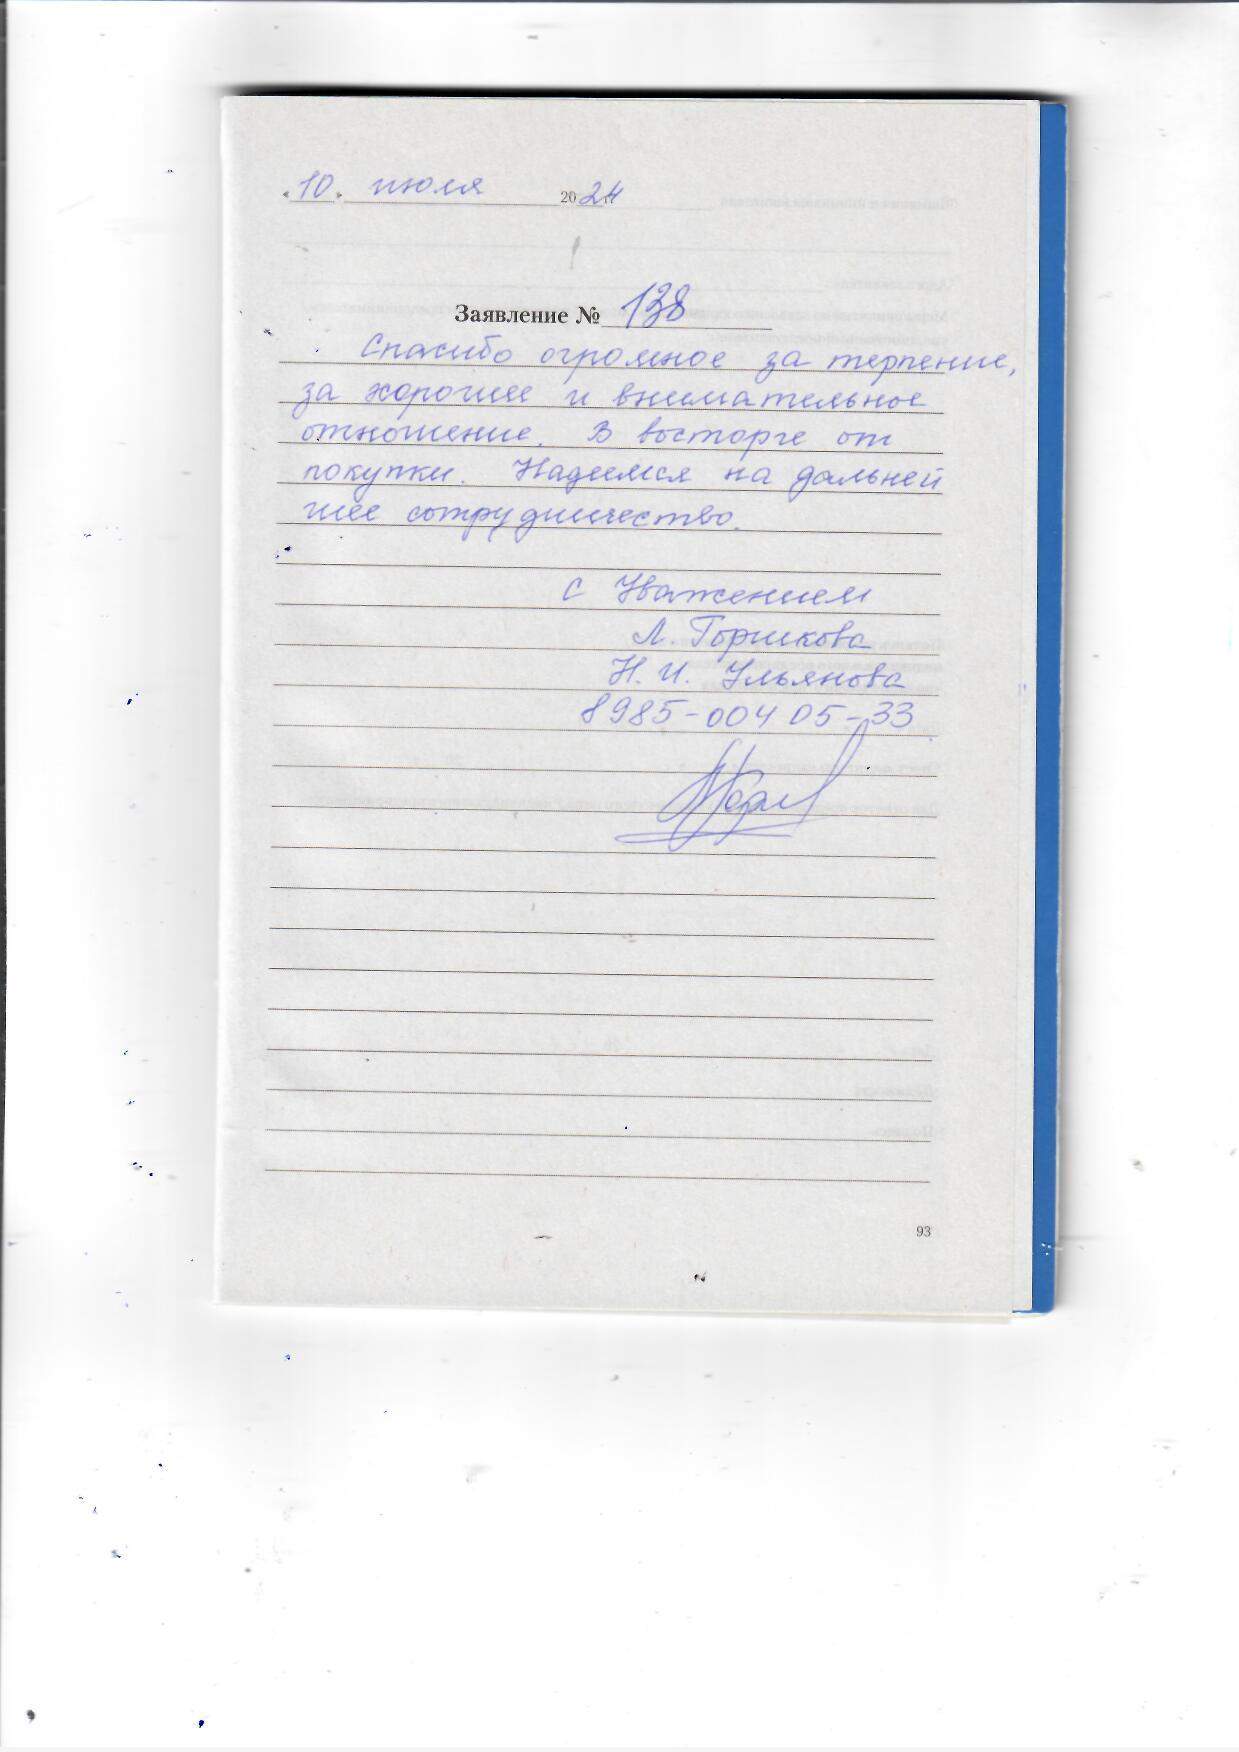 «10» июля 2024
Заявление № 138
Спасибо огромное за терпение,
за хорошее и внимательное
отношение. В восторге от
покупки. Надеимся на дальней
шее сотрудничество.
С Уважением
Л. Горшкова
Н. И. Ульянова
8985-004 05-33
93